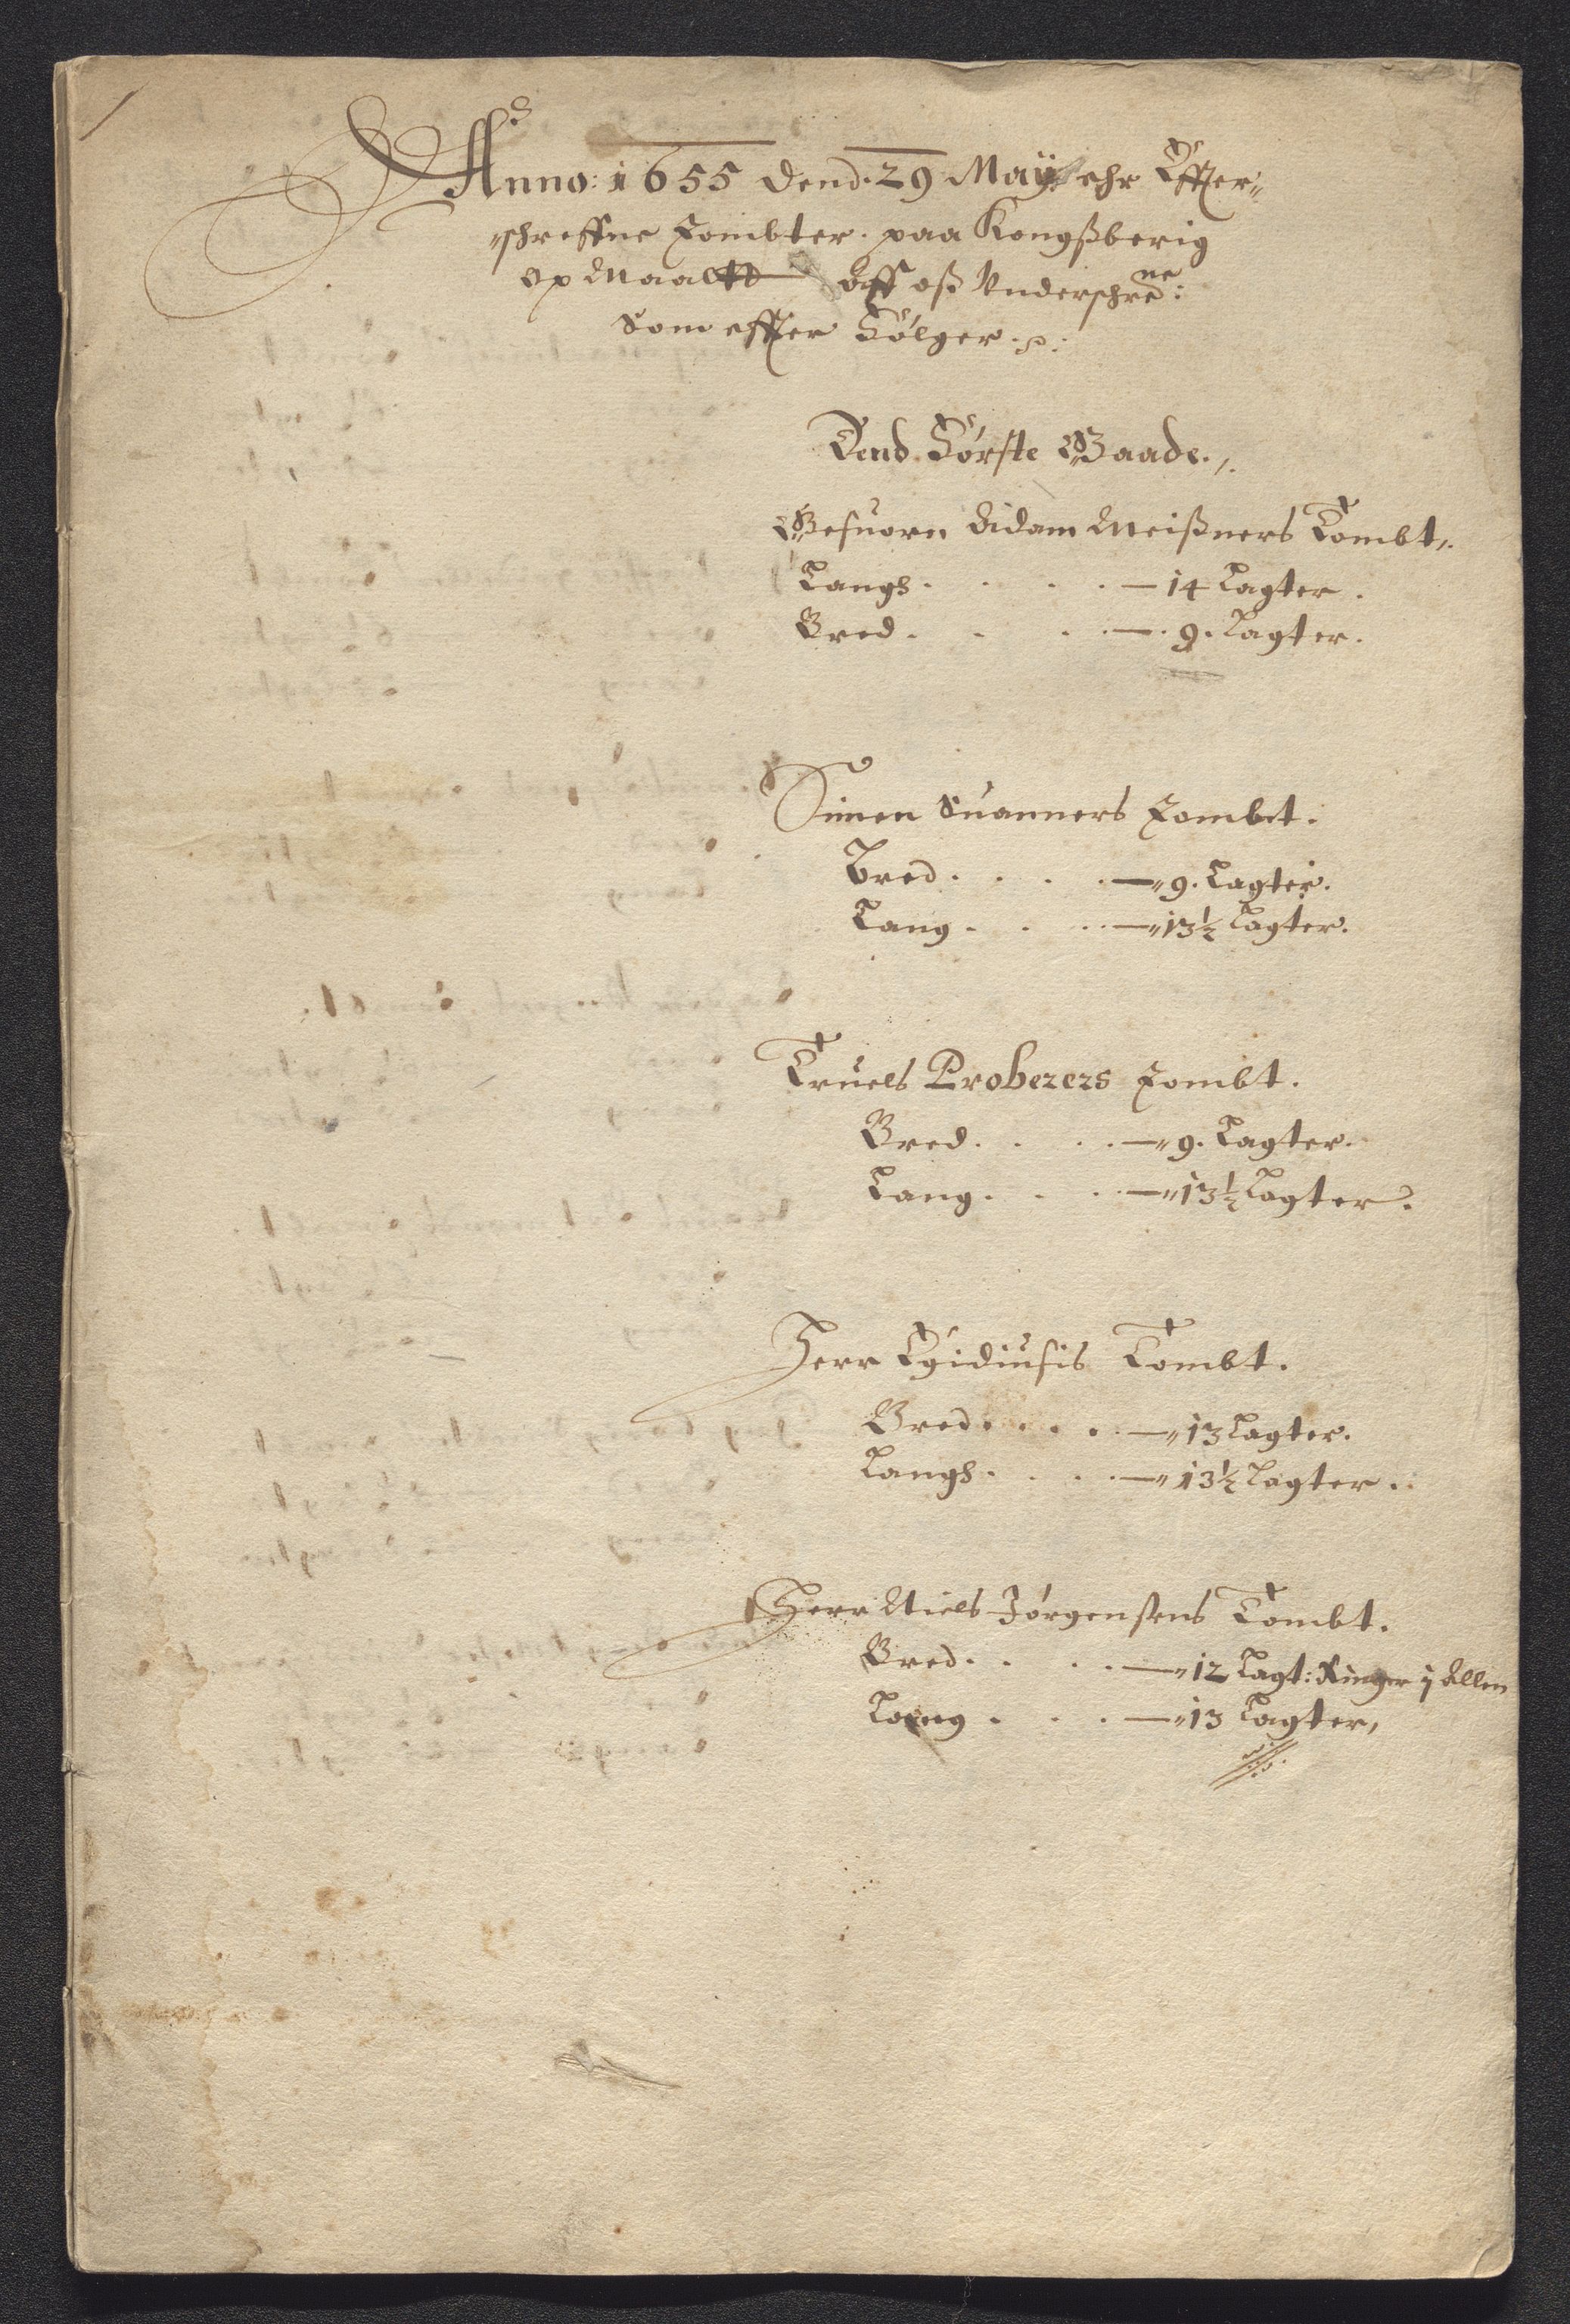 Anno: 1655 Dend. 29 Maÿ ehr Effter-
schreffne Tombter. paa Kongßberig
op Maaltt Aff oß Underschrene:
Som effter Fölger
Dend Förste Gaade.
Gesuorn Adam Meißners Tombt.
Langs . . . . — 14 Lagter.
Bred . . . . — 9. Lagter.
Simen Suanners Tombt.
Bred . . . . — 9. Lagter.
Lang . . . . — 13½ Lagter.
Truels Proberers Tombt.
Bred . . . . — 9. Lagter.
Lang . . . . — 13½ Lagter.
Herr Egidiusis Tombt.
Bred . . . . — 13 Lagter.
Langs . . . . — 13½ Lagter.
Herr Niels Jörgensens Tombt.
Bred . . . . — 12 Lagt: Ringer j Allen
Lang . . . . — 13 Lagter,